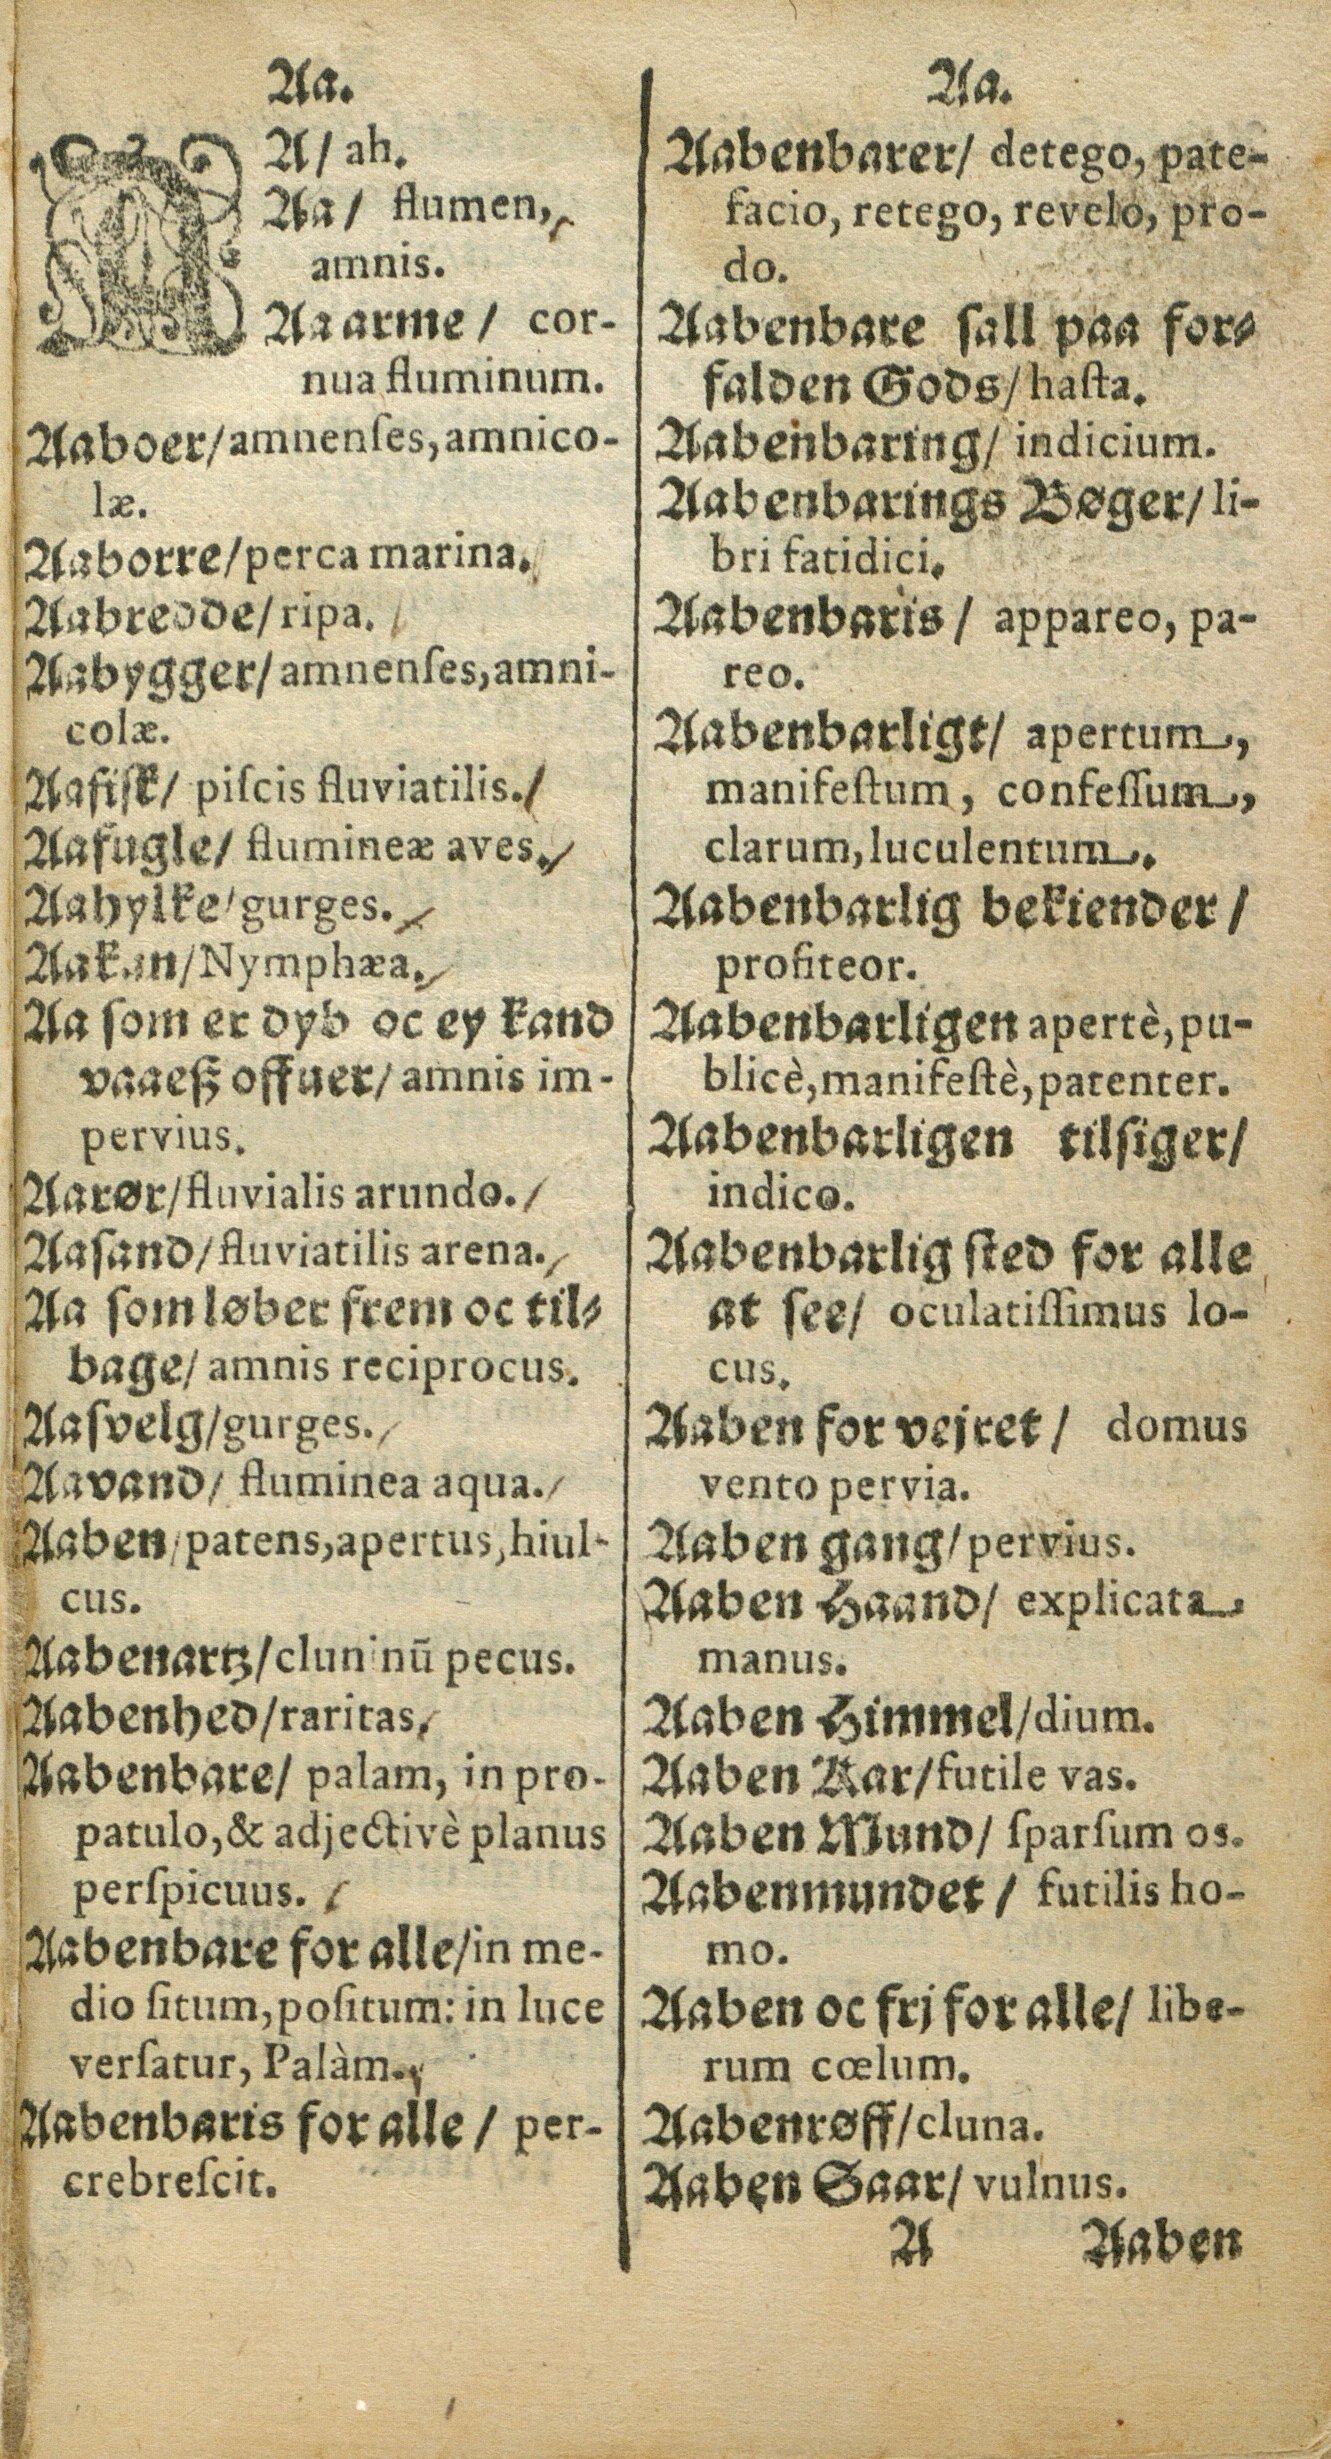 Aa.
A/ ah.
Aa/ flumen,
amnis.
Aaarme/ cor-
nua fluminum.
Aaboer/amnenſes, amnico-
læ.
Aaborre/perca marina.
Aabredde/ripa.
Aabygger/amnenſes, amni-
colæ.
Aafiſk/ piſcis fluviatilis.
Aafugle/ flumineæ aves.
Aahylke/gurges.
Nymphæa.
Aa ſom er dyb oc ey kand
vaaeß offuer/ amnis im-
pervius.
Aarør/fluvialis arundo.
Aaſand/fluviatilis arena.
Aa ſom løber frem oc til-
bage/ amnis reciprocus.
Aaſvelg/gurges.
Aavand/ fluminea aqua.
Aaben/patens, apertus, hiul-
cus.
Aabenartz/cluninū pecus.
Aabenhed/raritas.
Aabenbare/ palam, in pro-
patulo, & adjectivè planus
perſpicuus.
Aabenbare for alle/in me-
dio ſitum, poſitum: in luce
verſatur, Palàm.
Aabenbaris for alle/ per-
crebreſcit.
Aa.
Aabenbarer/ detego, pate-
facio, retego, revelo, pro-
do.
Aabenbare ſall paa for-
falden Gods/haſta.
Aabenbaring/ indicium.
Aabenbarings Bøger/ li-
bri fatidici.
Aabenbaris/ appareo, pa-
reo.
Aabenbarligt/ apertum,
manifeſtum, confeſſum,
clarum, luculentum.
Aabenbarlig bekiender/
profiteor.
Aabenbarligen apertè, pu-
blicè, manifeſtè, patenter.
Aabenbarligen tilſiger/
indico.
Aabenbarlig ſted for alle
at ſee/ oculatiſſimus lo-
cus.
Aaben for vejret/ domus
vento pervia.
Aaben gang/pervius.
Aaben Haand/ explicata
manus.
Aaben Himmel/dium.
Aaben Kar/futile vas.
Aaben Mund/ ſparſum os.
Aabenmundet/ futilis ho-
mo.
Aaben oc frj for alle/ libe-
rum cœlum.
Aabenrøff/cluna.
Aaben Saar/ vulnus.
A Aaben